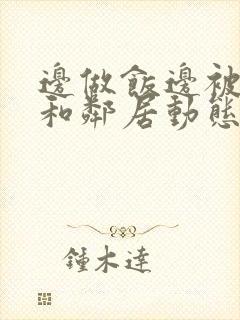 邊做飯邊被
和鄰居動態
鍾木達